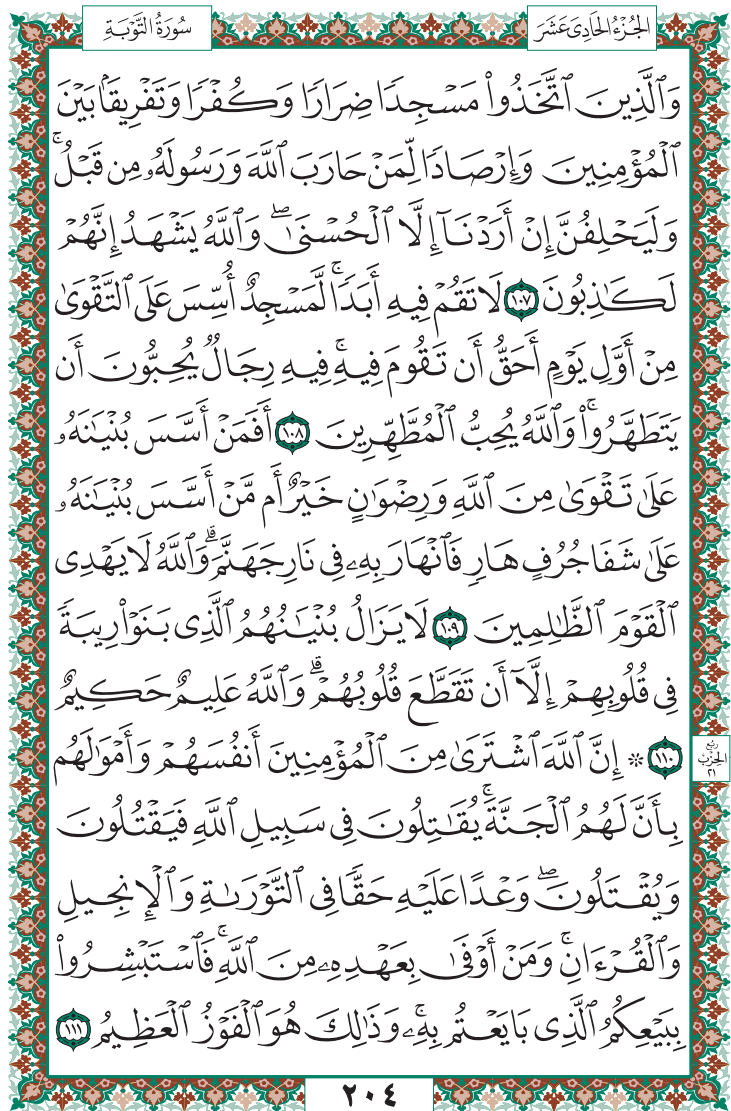 الجُزْءُ الحَادِىَ عَشَرَ
سُورَةُ التَّوْبَةِ
وَٱلَّذِينَ ٱتَّخَذُواْ مَسْجِدٗا ضِرَارٗا وَكُفْرٗا وَتَفْرِيقَۢا بَيْنَ
ٱلْمُؤْمِنِينَ وَإِرْصَادٗا لِّمَنْ حَارَبَ ٱللَّهَ وَرَسُولَهُۥ مِن قَبْلُۚ
وَلَيَحْلِفُنَّ إِنْ أَرَدْنَآ إِلَّا ٱلْحُسْنَىٰۖ وَٱللَّهُ يَشْهَدُ إِنَّهُمْ
لَكَٰذِبُونَ ١٠٧ لَا تَقُمْ فِيهِ أَبَدٗاۚ لَّمَسْجِدٌ أُسِّسَ عَلَى ٱلتَّقْوَىٰ
مِنْ أَوَّلِ يَوْمٍ أَحَقُّ أَن تَقُومَ فِيهِۚ فِيهِ رِجَالٞ يُحِبُّونَ أَن
يَتَطَهَّرُواْۚ وَٱللَّهُ يُحِبُّ ٱلْمُطَّهِّرِينَ ١٠٨ أَفَمَنْ أَسَّسَ بُنْيَٰنَهُۥ
عَلَىٰ تَقْوَىٰ مِنَ ٱللَّهِ وَرِضْوَٰنٍ خَيْرٌ أَم مَّنْ أَسَّسَ بُنْيَٰنَهُۥ
عَلَىٰ شَفَا جُرُفٍ هَارٖ فَٱنْهَارَ بِهِۦ فِى نَارِ جَهَنَّمَۗ وَٱللَّهُ لَا يَهْدِى
ٱلْقَوْمَ ٱلظَّٰلِمِينَ ١٠٩ لَا يَزَالُ بُنْيَٰنُهُمُ ٱلَّذِى بَنَوْاْ رِيبَةٗ
فِى قُلُوبِهِمْ إِلَّآ أَن تَقَطَّعَ قُلُوبُهُمْۗ وَٱللَّهُ عَلِيمٌ حَكِيمٌ
١١٠ ۞ إِنَّ ٱللَّهَ ٱشْتَرَىٰ مِنَ ٱلْمُؤْمِنِينَ أَنفُسَهُمْ وَأَمْوَٰلَهُم
رُبْع الحِزْب ٢١
بِأَنَّ لَهُمُ ٱلْجَنَّةَۚ يُقَٰتِلُونَ فِى سَبِيلِ ٱللَّهِ فَيَقْتُلُونَ
وَيُقْتَلُونَۖ وَعْدًا عَلَيْهِ حَقّٗا فِى ٱلتَّوْرَىٰةِ وَٱلْإِنجِيلِ
وَٱلْقُرْءَانِۚ وَمَنْ أَوْفَىٰ بِعَهْدِهِۦ مِنَ ٱللَّهِۚ فَٱسْتَبْشِرُواْ
بِبَيْعِكُمُ ٱلَّذِى بَايَعْتُم بِهِۦۚ وَذَٰلِكَ هُوَ ٱلْفَوْزُ ٱلْعَظِيمُ ١١١
٢٠٤